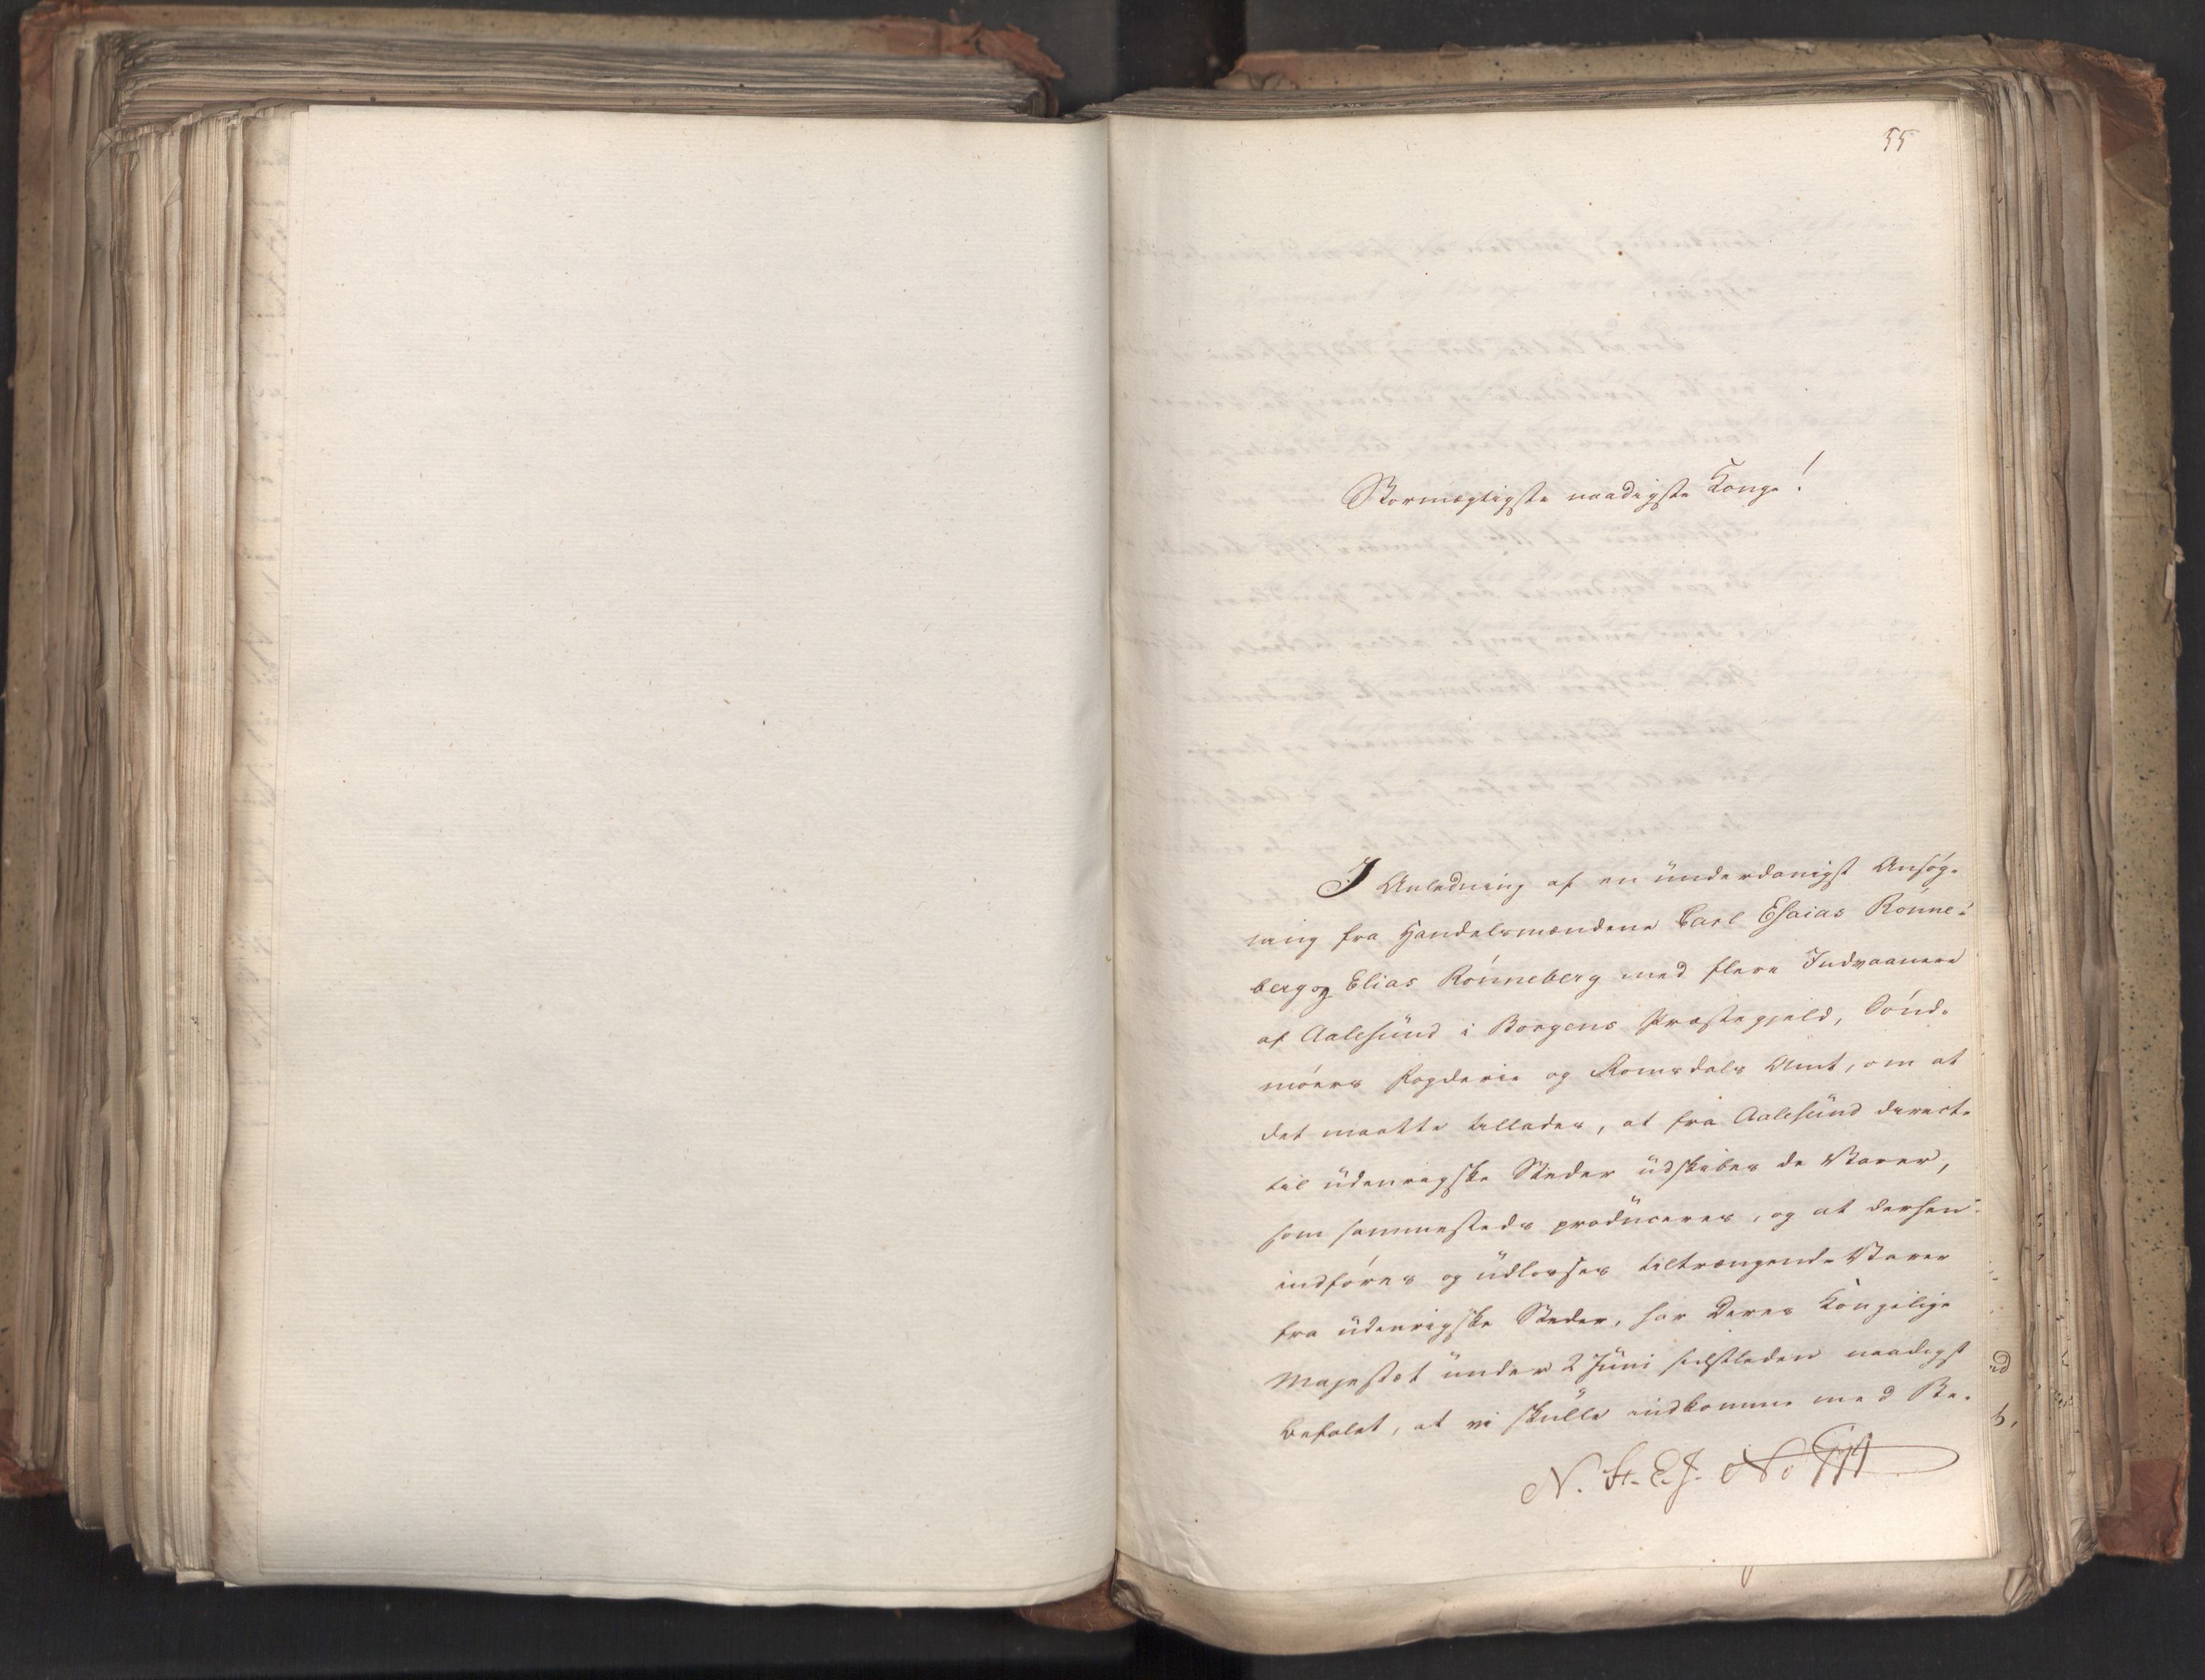 55
Stormægtigste naadigste Konge!
I Anledning af en underdanigst Ansøg-
ning fra Handelsmændene Carl Esaias Rønne-
berg og Elias Rønneberg med flere Indvaanere
af Aalesund i Borgens Præstegjeld, Sønd-
møers Fogderie og Romsdals Amt, om at
det maatte tillades, at fra Aalesund directe
til udenrigske Steder udskibes de Varer,
som sammesteds produceres, og at dersen-
indføres og udlosses tiltrængende Varer
fra udenrigske Steder, har Deres Kongelige
Majestæt under 2 Juni sidstleden naadigst
befalet, at vi skulle indkomme med Be-